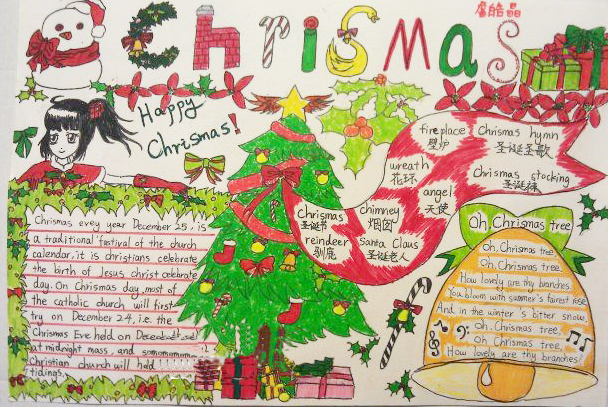 Chrismas
皓晶
Happy
Chrismas!
fireplace
壁炉
Chrismas hymn
圣诞圣歌
wreath
花环
Chrismas stocking
圣诞袜
angel
天使
chrismas
圣诞书
chimney
烟囱
reindeer
驯鹿
Santa Claus
圣诞老人
Chrismas evey year December 25, is
a traditional fastival of the church
calendar, it is christians celebrate
the birth of Jesus christ celebrate
day. On Chrismas day, most of
the catholic church will first
try on December 24, i.e. the
Chrismas Eve held on
at midnight mass, and
Christian church will held
tidings.
Oh, Chrismas tree
Oh, Chrismas tree
Oh, Chrismas tree,
How lovely are thy branches.
You bloom with summer's fairest rose,
And in the winter's bitter snow
Oh, Chrismas tree,
Oh, Chrismas tree,
How lovely are thy branches!